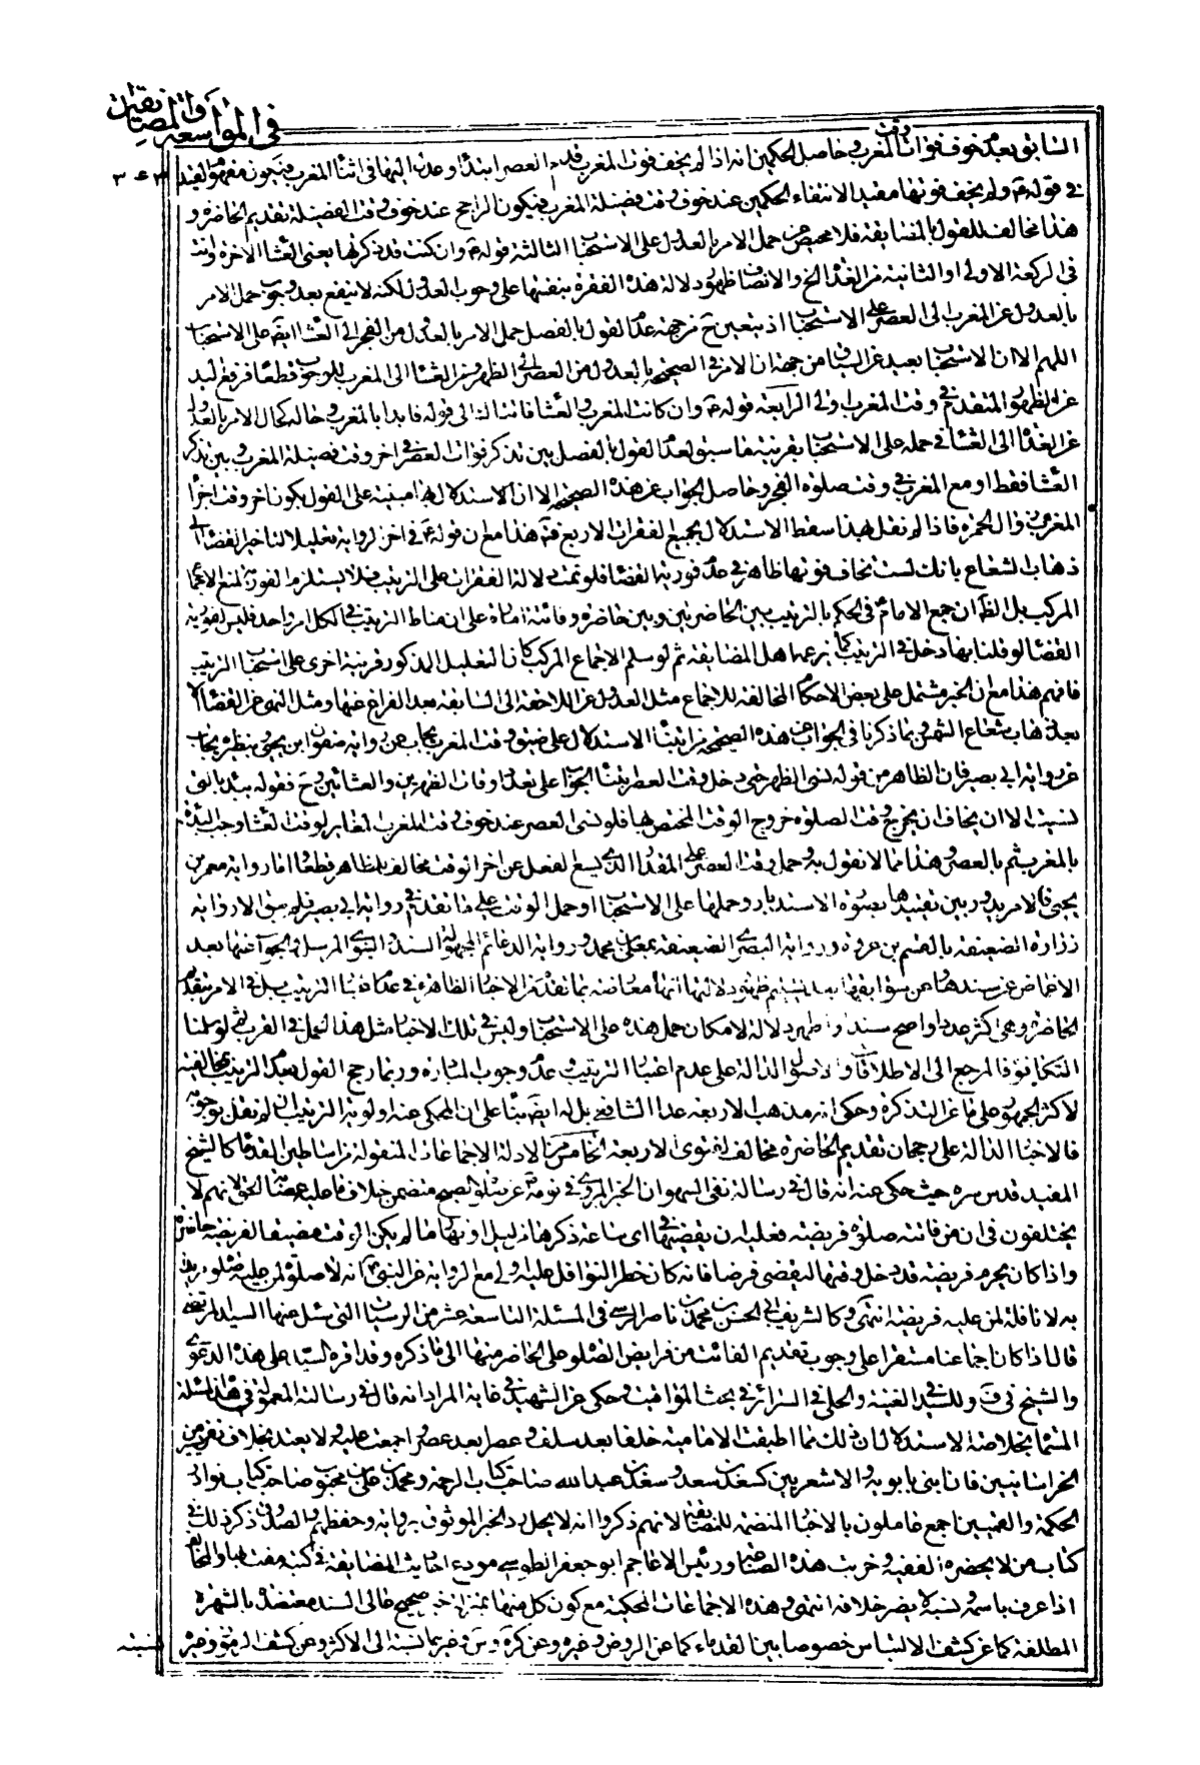 في المواسعة والمضايقة
٣٤٣
السابق بعد خوف فوات وقت المغرب وحاصل الحكمين انه اذا لم يخف فوت المغرب قدم العصر ابتداء وعدل اليها في اثناء المغرب فيكون مفهوم القيد
في قوله ع ولم يخف فوتها مفيدا لانتفاء الحكمين عند خوف وقت فضيلة المغرب فيكون الراجح عند خوف وقت الفضيلة تقديم الحاضرة و
هذا مخالف للقول بالمضايقة فلا محيص عن حمل الامر بالعدول على الاستحباب الثالثة قوله ع وان كنت قد ذكرتها يعني العشاء الاخرة وانت
في الركعة الاولى او الثانية من الغداة الخ والانصاف ظهور دلالة هذه الفقرة بنفسها على وجوب العدول لكنه لا ينفع بعد وجوب حمل الامر
بالعدول عن المغرب الى العصر على الاستحباب اذ يتعين ح من جهة عدم القول بالفصل حمل الامر بالعدول من الفجر الى العشاء ايضا على الاستحباب
اللهم الا ان الاستحباب بعيد عن السياق من جهة ان الامر في الصحيحة بالعدول من العصر الى الظهر ومن العشاء الى المغرب للوجوب قطعا فرفع اليد
عن الظهور المتقدم في وقت المغرب اولى الرابعة قوله ع وان كانت المغرب والعشاء فاتتاك الى قوله فابدا بالمغرب وحاله كحال الامر بالعدول
عن الغداة الى العشاء في حمله على الاستحباب بقرينة ما سبق لعدم القول بالفصل بين تذكر فوات العصر في اخر وقت فضيلة المغرب وبين تذكر
العشاء فقط او مع المغرب في وقت صلوة الفجر وحاصل الجواب عن هذه الصحيحة الا ان الاستدلال بها مبنية على القول بكون اخر وقت اجزاء
المغرب زوال الحمرة فاذا لم نقل بهذا سقط الاستدلال بجميع الفقرات الاربع منه هذا مع ان قوله ع في اخر الرواية تعليلا لتاخير القضاء الى
ذهاب الشعاع بانك لست تخاف فوتها ظاهر في عدم فورية القضاء فلو تمت دلالة الفقرات على الترتيب فلا يستلزم الفورية لمنع الاجماع
المركب بل الظ ان جمع الامام في الحكم بالترتيب بين الحاضرتين وبين حاضرة وفائتة امارة على ان مناط الترتيب في الكل امر واحد فليس لفورية
القضاء لو قلنا بها دخل في الترتيب كما يزعمه اهل المضايقة ثم لو سلم الاجماع المركب كان التعليل المذكور قرينة اخرى على استحباب الترتيب
فافهم هذا مع ان الخبر مشتمل على بعض الاحكام المخالفة للاجماع مثل العدول عن اللاحقة الى السابقة بعد الفراغ عنها ومثل النهي عن القضاء الا
بعد ذهاب شعاع الشمس وبما ذكرنا في الجواب عن هذه الصحيحة من ابتناء الاستدلال على ضيق وقت المغرب يجاب عن رواية صفوان ابن يحيى وبنظيره يجاب
عن رواية ابي بصير فان الظاهر من قوله نسي الظهر حتى دخل وقت العصر ابتناء الجواب على تعدد اوقات الظهرين والعشائين وح فقوله يبدء بالتي
نسيت الا ان يخاف ان يخرج وقت الصلوة خروج الوقت المختص بها فلو نسي العصر عند خوف وقت المغرب المغاير لوقت العشاء وجب البدئة
بالمغرب ثم بالعصر وهذا مما لا نقول به وحمل وقت العصر على المقدار الذي يسع الفعل عن اخر الوقت مخالف للظاهر قطعا اما رواية معمر بن
يحيى فالامر يدور بين تقييدها بصورة الاستدبار وحملها على الاستحباب او حمل الوقت على ما تقدم في رواية ابي بصير فلم يبق الا رواية
زرارة الضعيفة بالقسم بن عروة ورواية البصري الضعيفة بمعلى بن محمد ورواية الدعائم المجهولة السند والنبوي المرسل والجواب عنها بعد
الاغماض عن سندها وعن سوابقها بعد تسليم ظهور دلالتها انها معارضة بما تقدم من الاخبار الظاهرة في عدم اعتبار الترتيب بل في الامر بتقديم
الحاضرة وهي اكثر عددا واصح سندا واظهر دلالة لامكان حمل هذه على الاستحباب وليس في تلك الاخبار مثل هذا الحمل في القرب ثم لو سلمنا
التكافؤ فالمرجع الى الاطلاقات والاصول الدالة على عدم اعتبار الترتيب وعدم وجوب المبادرة وربما رجح القول بعدم الترتيب بمخالفته
لاكثر الجمهور على ما عن التذكرة وحكي انه مذهب الاربعة عدا الشافعي بل له ايضا بناء على ان المحكي عنه اولوية الترتيب ان لم نقل بوجوبه
فالاخبار الدالة على رجحان تقديم الحاضرة مخالف لفتوى الاربعة الخامس من الادلة الاجماعات المنقولة من اساطين القدماء كالشيخ
المفيد قدس سره حيث حكي عنه انه قال في رسالة نفي السهو ان الخبر المروي في نومه ع عن صلوة الصبح متضمن خلاف ما عليه عصابة الحق لانهم لا
يختلفون في ان من فاتته صلوة فريضة فعليه ان يقضيها في اي ساعة ذكرها من ليل او نهار ما لم يكن الوقت مضيقا لفريضة حاضرة
واذا كان يحرم فريضة قد دخل وقتها ليقضي فرضا فاته كان حظر النوافل عليه اولى مع الرواية عن النبي ص انه لا صلوة لمن عليه صلوة يريد
به لا نافلة لمن عليه فريضة انتهى وكالشريف ابي الحسن بن محمد بن ناصر الرسي في المسئلة التاسعة عشر من الرسيات التي سئل عنها السيد المرتضى
قال اذا كان اجماعنا مستقرا على وجوب تقديم الفائت من فرايض الصلوة على الحاضر منها الى ما ذكره وقد اقره السيد على هذه الدعوى
والشيخ في ف وللسيد في الغنية والحلي في السرائر في بحث المواقيت وحكي عن الشهيد في غاية المراد انه قال في رسالته المعمولة في هذه المسئلة
المسماة بخلاصة الاستدلال ان ذلك مما اطبقت الامامية خلفا بعد سلف وعصرا بعد عصر واجمعت عليه ولا يعتد بخلاف نفر يسير من
الخراسانيين فان ابني بابويه والاشعريين كسعد بن سعد وسعد بن عبدالله صاحب كتاب الرحمة ومحمد بن علي بن محبوب صاحب كتاب نوادر
الحكمة والقميين اجمع عاملون بالاخبار المتضمنة للمضايقة لانهم ذكروا انه لا يحل رد الخبر الموثوق برواته وحفظتهم والصدوق ذكر ذلك في
كتاب من لا يحضره الفقيه وخريت هذه الصناعة ورئيس الاعاجم ابو جعفر الطوسي مودع احاديث المضايقة في كتبه مفت بها والمخالف
اذا عرف باسمه ونسبه لا يضر خلافه انتهى وهذه الاجماعات المحكية مع كون كل منها بمنزلة خبر صحيح عالي السند معتضد بالشهرة
المطلقة كما عن كشف الالتباس خصوصا بين القدماء كما عن الروض وغيره وعن كره وس وغيرهما نسبة الى الاكثر وعن كشف الرموز وغيره
نسبته